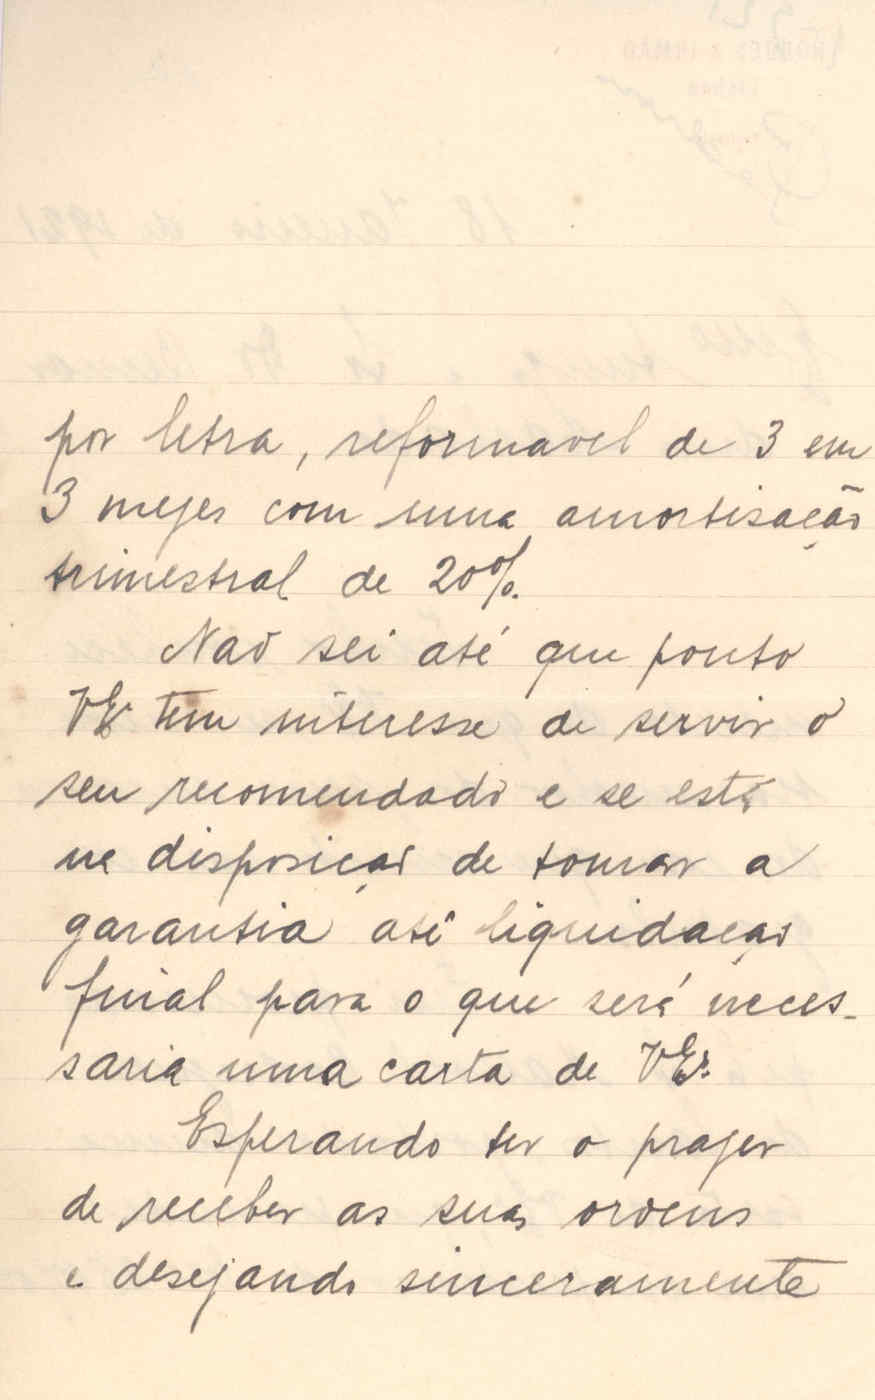 por letra, reformavel de 3 em
3 mezes com uma amortisação
trimestral de 20%.
Não sei até que ponto
VEx tem interesse de servir o
seu recomendado e se está
na disposição de tomar a
garantia até liquidação
final para o que será neces-
saria uma carta de VEx.
Esperando ter o prazer
de receber as suas ordens
e desejando sinceramente